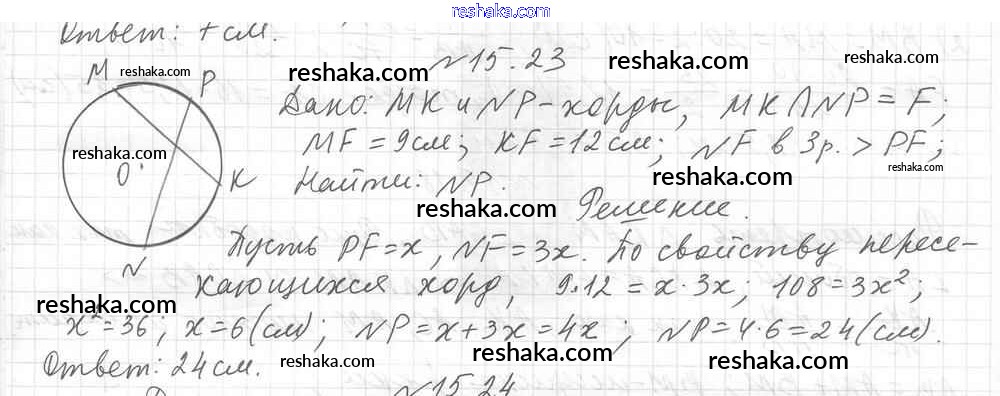 reshaka.com
Ответ: 7 см.
№15.23
reshaka.com
M reshaka.com P
Дано: MK и NP-хорды, MK∩NP=F;
reshaka.com
MF=9см; KF=12см; NF в 3р. > PF;
reshaka.com
O
K Найти: NP. reshaka.com
reshaka.com
Решение.
N Пусть PF=x, NF=3x. По свойству пересе-
reshaka.com
кающихся хорд, 9·12=x·3x; 108=3x²;
reshaka.com
x²=36; x=6(см); NP=x+3x=4x; NP=4·6=24(см).
reshaka.com
Ответ: 24см. reshaka.com reshaka.com
№15.24